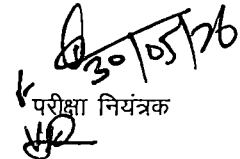 30/05/26
परीक्षा नियंत्रक